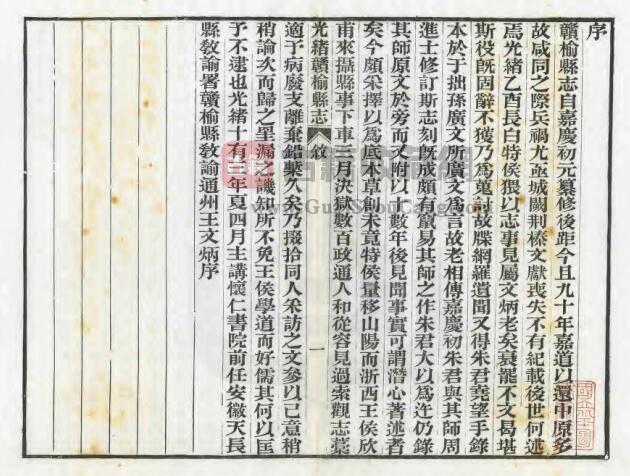 序
贛榆縣志自嘉慶初元纂修後距今且九十年嘉道以還中原多
故咸同之際兵禍尤亟城闕荆榛文獻喪失不有紀載後世何述
焉光緒乙酉長白特侯猥以志事見屬文炳老矣衰罷不文易堪
斯役既固辭不獲乃爲蒐討故牒網羅遺聞又得朱君堯望手錄
本於于拙孫廣文所廣文爲言故老相傳嘉慶初朱君與其師周
進士修訂斯志刻既成頗有竄易其師之作朱君大以爲迕仍錄
其師原文於旁而又附以十數年後見聞事實可謂潛心著述者
矣今頗采擇以爲底本草創未竟特侯量移山陽而浙西王侯欣
甫來攝縣事下車三月決獄數百政通人和從容見過索觀志藁
光緒贛榆縣志
敘
一
適于病廢支離棄鉛槧久矣乃掇拾同人采訪之文參以己意稍
稍論次而歸之罣漏之譏知所不免王侯學道而好儒其何以匡
予不逮也光緒十有二年夏四月主講懷仁書院前任安徽天長
縣敎諭署贛榆縣敎諭通州王文炳序